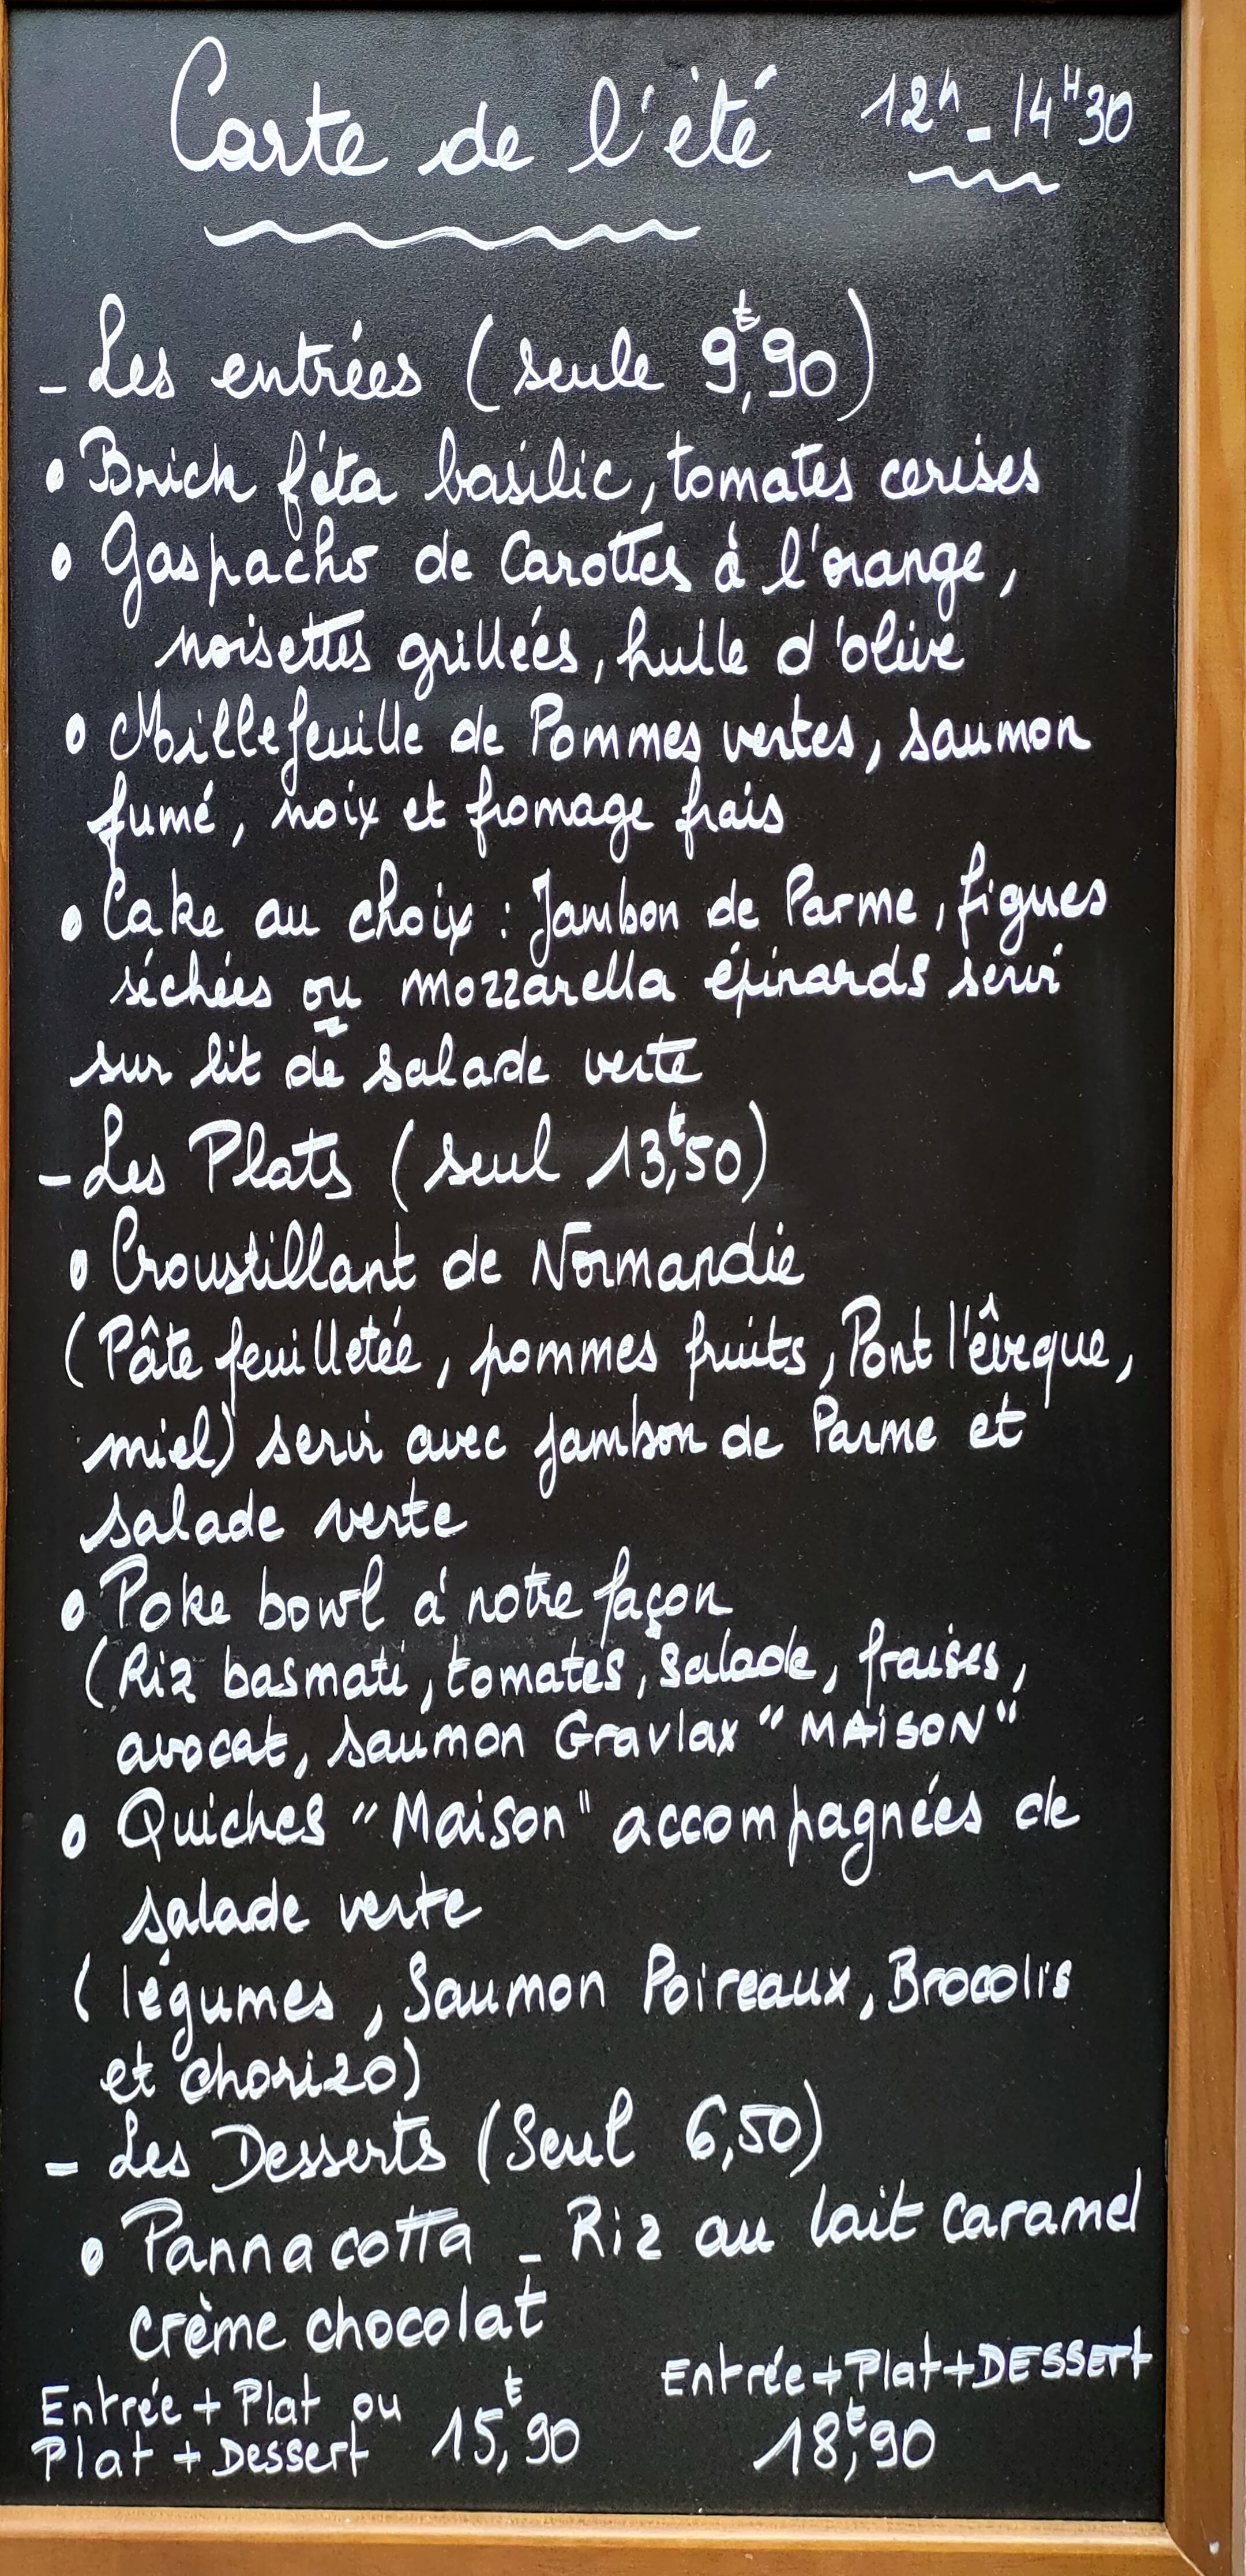 Carte de l'été 12h - 14H30
- Les entrées (seule 9€,90)
• Brick féta basilic, tomates cerises
• Gaspacho de Carottes à l'orange,
noisettes grillées, huile d'olive
• Millefeuille de Pommes vertes, saumon
fumé, noix et fromage frais
• Cake au choix : Jambon de Parme, figues
séchées ou mozzarella épinards servi
sur lit de salade verte
- Les Plats (seul 13€,50)
• Croustillant de Normandie
(Pâte feuilletée, pommes fruits, Pont l'êvêque,
miel) servi avec jambon de Parme et
salade verte
• Poke bowl à notre façon
(Riz basmati, tomates, salade, fraises,
avocat, saumon Gravlax "MAISON"
• Quiches "Maison" accompagnées de
salade verte
(légumes, Saumon Poireaux, Brocolis
et chorizo)
- Les Desserts (Seul 6,50)
• Pannacotta - Riz au lait caramel
crème chocolat
Entrée + Plat ou
Plat + Dessert 15€,90
Entrée+Plat+DESSERT
18€,90